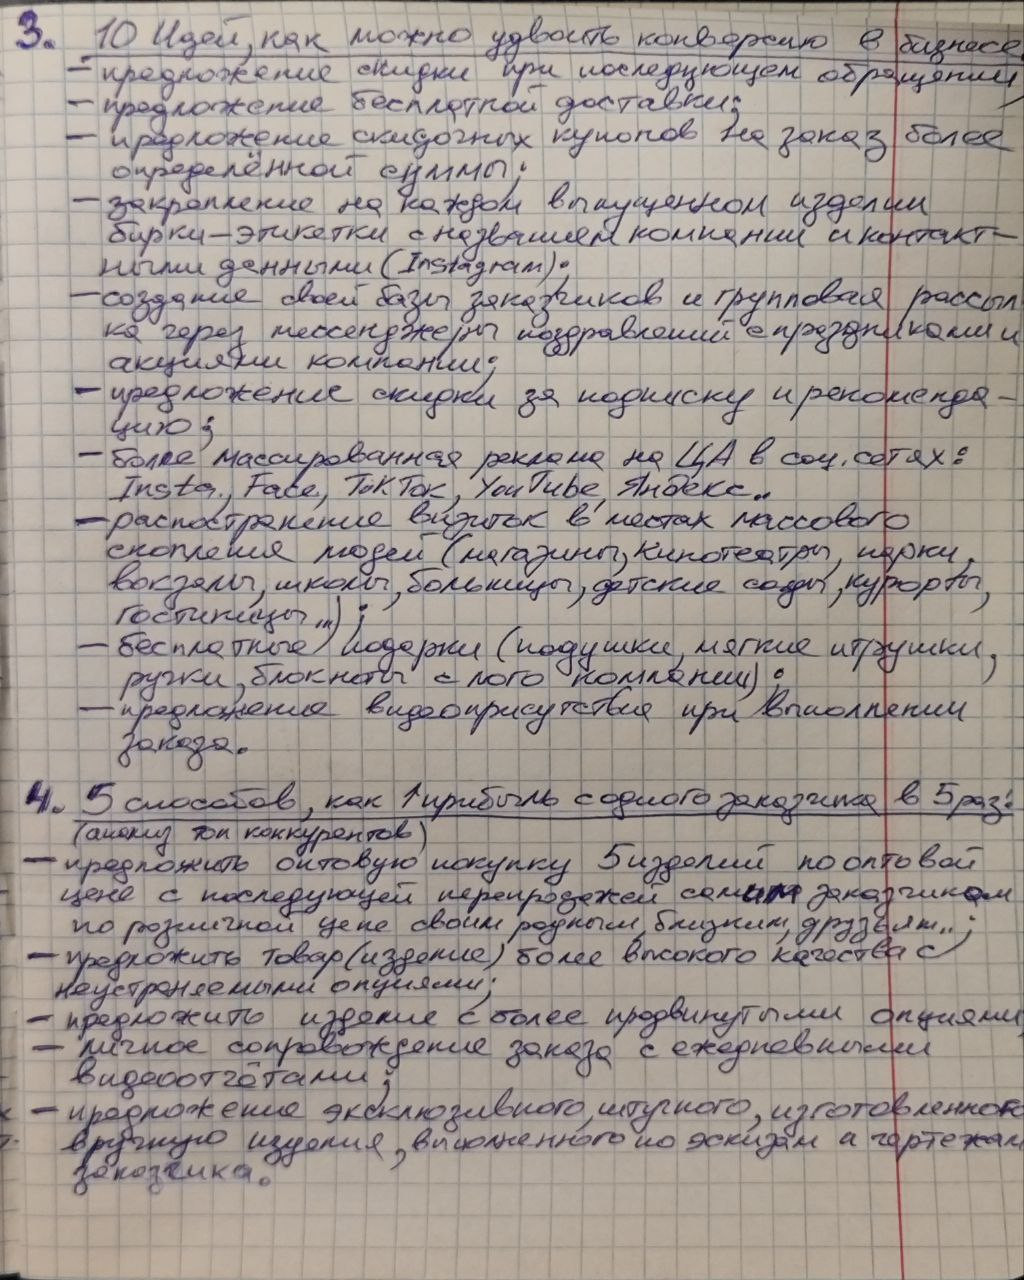 3. 10 Идей, как можно удвоить конверсию в бизнесе
- предложение скидки при последующем обращении,
- предложение бесплатной доставки;
- предложение скидочных купонов на заказ более
определённой суммы;
- закрепление на каждом выпущенном изделии
бирки-этикетки с названием компании и контакт-
ными данными (Instagram);
- создание своей базы заказчиков и групповая рассыл
ка через мессенджеры поздравлений с праздниками и
акциями компании;
- предложение скидки за подписку и рекоменда-
цию;
- более массированная реклама на ЦА в соц. сетях:
Insta, Face, TokTok, YouTube, Яндекс..
- распостранение визиток в местах массового
скопления людей (магазины, кинотеатры, парки,
вокзалы, школы, больницы, детские сады, курорты,
гостиницы...);
- бесплатные подарки (подушки, мягкие игрушки,
ручки, блокноты с лого компании);
- предложение видеоприсутствия при выполнении
заказа.
4. 5 способов, как ↑ прибыль с одного заказчика в 5 раз:
(анализ топ конкурентов)
- предложить оптовую покупку 5 изделий по оптовой
цене с последующей перепродажей самим заказчиком
по розничной цене своим родным, близким, друзьям..;
- предложить товар (изделие) более высокого качества с
неустраняемыми опциями;
- предложить изделие с более продвинутыми опциями
- личное сопровождение заказа с ежедневными
видеоотчётами;
- предложение эксклюзивного, штучного, изготовленного
вручную изделия, выполненного по эскизам и чертежам
заказчика.